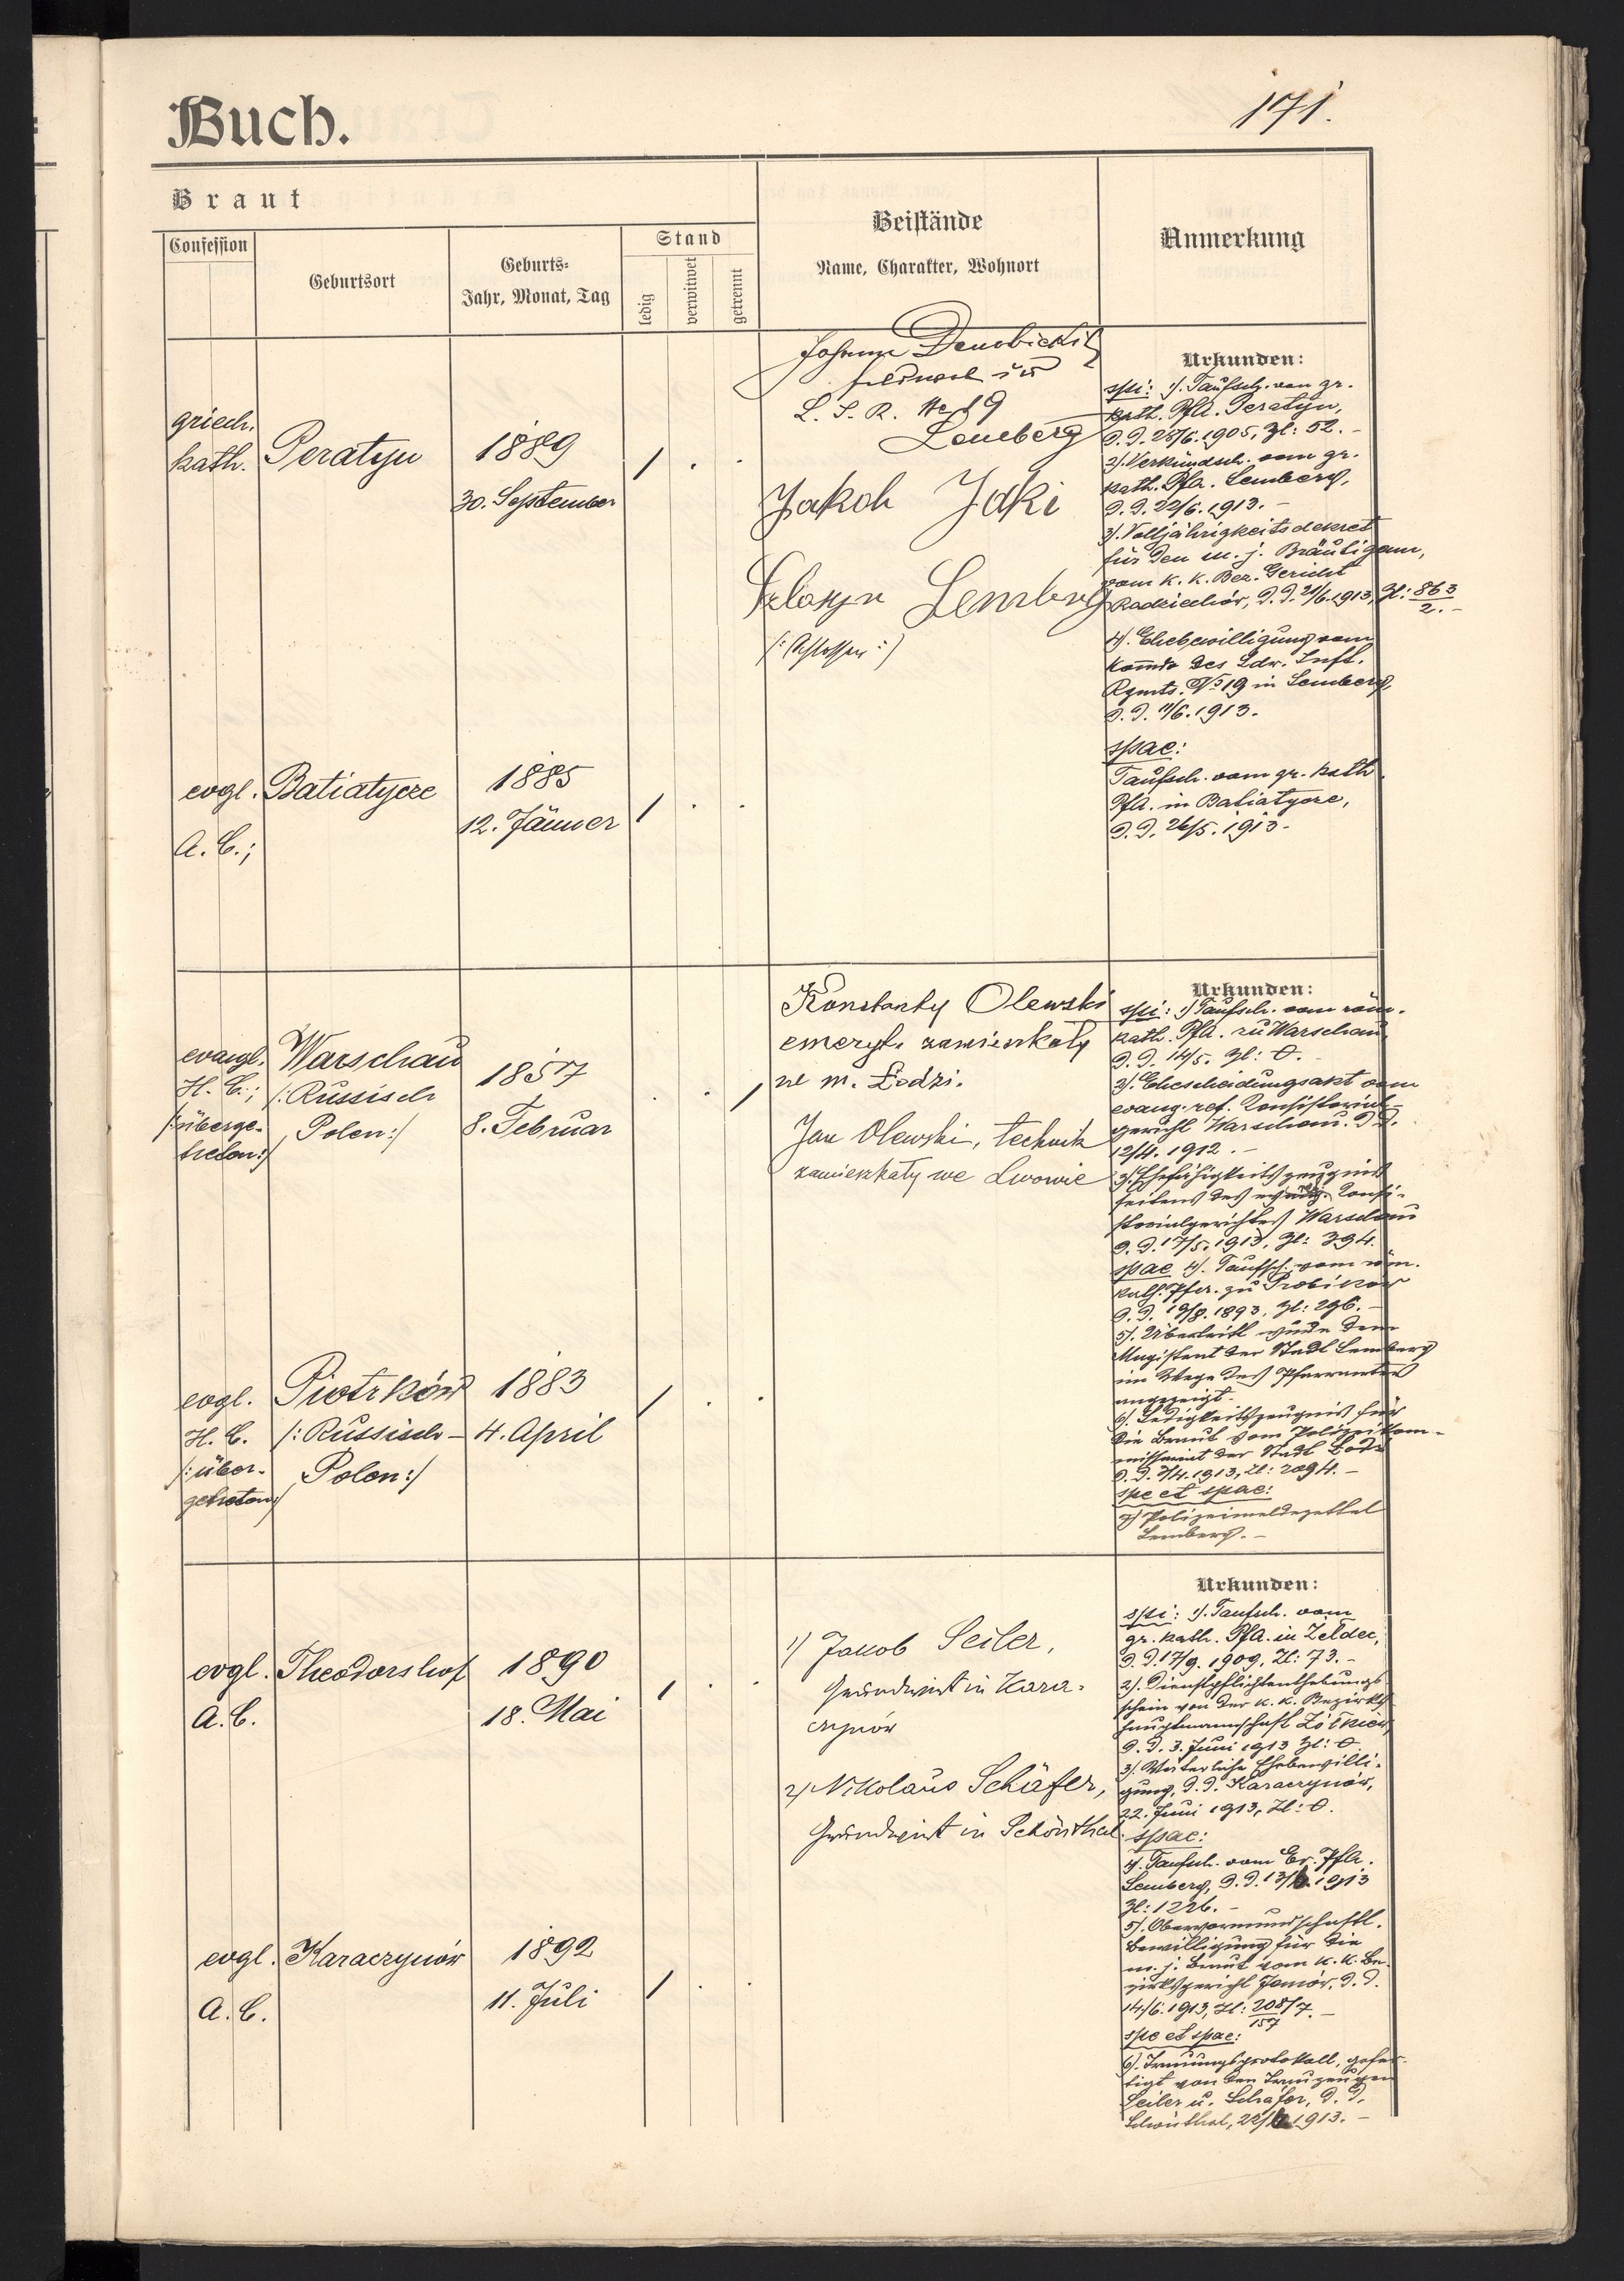 Buch.
171.
Braut
Confession
Geburtsort
Geburts-
Jahr, Monat, Tag
Stand
ledig
verwitwet
getrennt
Beistände
Name, Charakter, Wohnort
Anmerkung
griech.
kath.
Peratyn
1889
30. September
Johann
L. I. R. No 19
Lemberg
Jakob Jaki
Lemberg
(: Schlosser :)
Urkunden:
spi: 1). Taufsch. vom gr.
kath. PfA. Peratyn,
d. d. 28/6. 1905, Zl: 52. -
2). Verkündsch. vom gr.
kath. PfA. Lemberg,
d. d. 22/6. 1913. -
3). Volljährigkeitsdekret
für den m. j. Bräutigam,
vom k. k. Bez. Gericht
Radziechów, d. d. 21/6. 1913, Zl: 863/2. -
4). Ehebewilligung vom
Komdo des Ldw. Inft.
Rgmts. No 19 in Lemberg,
d. d. 11/6. 1913.
spae:
Taufsch. vom gr. kath
PfA. in Batiatycze,
d. d. 26/5. 1913 -
evgl.
A. C.;
Batiatycze
1885
12. Jänner
evangl.
H. C.;
/: überge-
treten:/
Warschau
/: Russisch
Polen:/
1857
8. Februar
Konstanty Olewski
emeryt. zamieszkały
we m. Łodzi.
Jan Olewski, technik
zamieszkały we Lwowie
Urkunden:
spi: 1) Taufsch. vom röm.
kath. PfA. zu Warschau
d. d. 14/5. Zl: 0. -
2). Ehescheidungsakt vom
evang. ref. Konsistorial-
gericht Warschau. d d.
12/4. 1912. -
3). Ehefähigkeitszeugnis
seitens des evang. Konsi-
storialgerichtes Warschau
d. d. 17/5. 1913, Zl: 394.
spae 4). Taufsch. vom röm.
kath. Pfa. zu
d. d. 19/8. 1893, Zl: 296. -
5). Übertritt wurde dem
Magistrat der Stadt Lemberg
im Wege des Pfarramtes
angezeigt. -
6). Ledigkeitszeugnis für
die Braut vom Polizeikom-
missariat der Stadt Lodz
d. d. 2/4. 1913, Zl: 2094. -
spe et spae:
7) Polizeimeldezettel
Lemberg. -
evgl.
H. C.
/: über-
getreten:/
Piotrków
/: Russisch -
Polen:/
1883
4. April
evgl.
A. C.
Theodorshof
1890
18. Mai
1) Jakob Seiler,
Grundwirt in Kara-
czynów
2) Nikolaus Schäfer,
Grundwirt in Schönthal.
Urkunden:
spi: 1). Taufsch. vom
gr. kath. PfA. in Zeldec,
d. d. 17/9. 1909, Zl: 73. -
2). Dienstpflichtenthebungs
schein von der k. k. Bezirks
hauptmannschaft Żółkiew,
d. d. 3. Juni 1913 Zl: 0.
3). Väterliche Ehebewilli-
gung, d. d. Karaczynów,
22. Juni 1913, Zl: 0.
spae:
4). Taufsch. vom Ev. PfA.
Lemberg, d. d. 13/6. 1913
Zl: 1226. -
5). Obervormundschaftl.
Bewilligung für die
m. j. Braut vom k. k. Be-
zirksgericht Janów, d. d.
14/6. 1913, Zl: 208/7/157. -
spe et spae:
6). Trauungsprotokoll, gefer-
tigt von den Trauzeugen
Seiler u. Schäfer, d. d.
Schönthal, 22/6. 1913. -
evgl.
A. C.
Karaczynów
1892
11. Juli